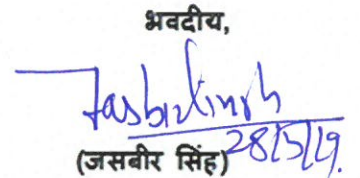 भवदीय,
Jasbir Singh
28/5/19.
(जसबीर सिंह)